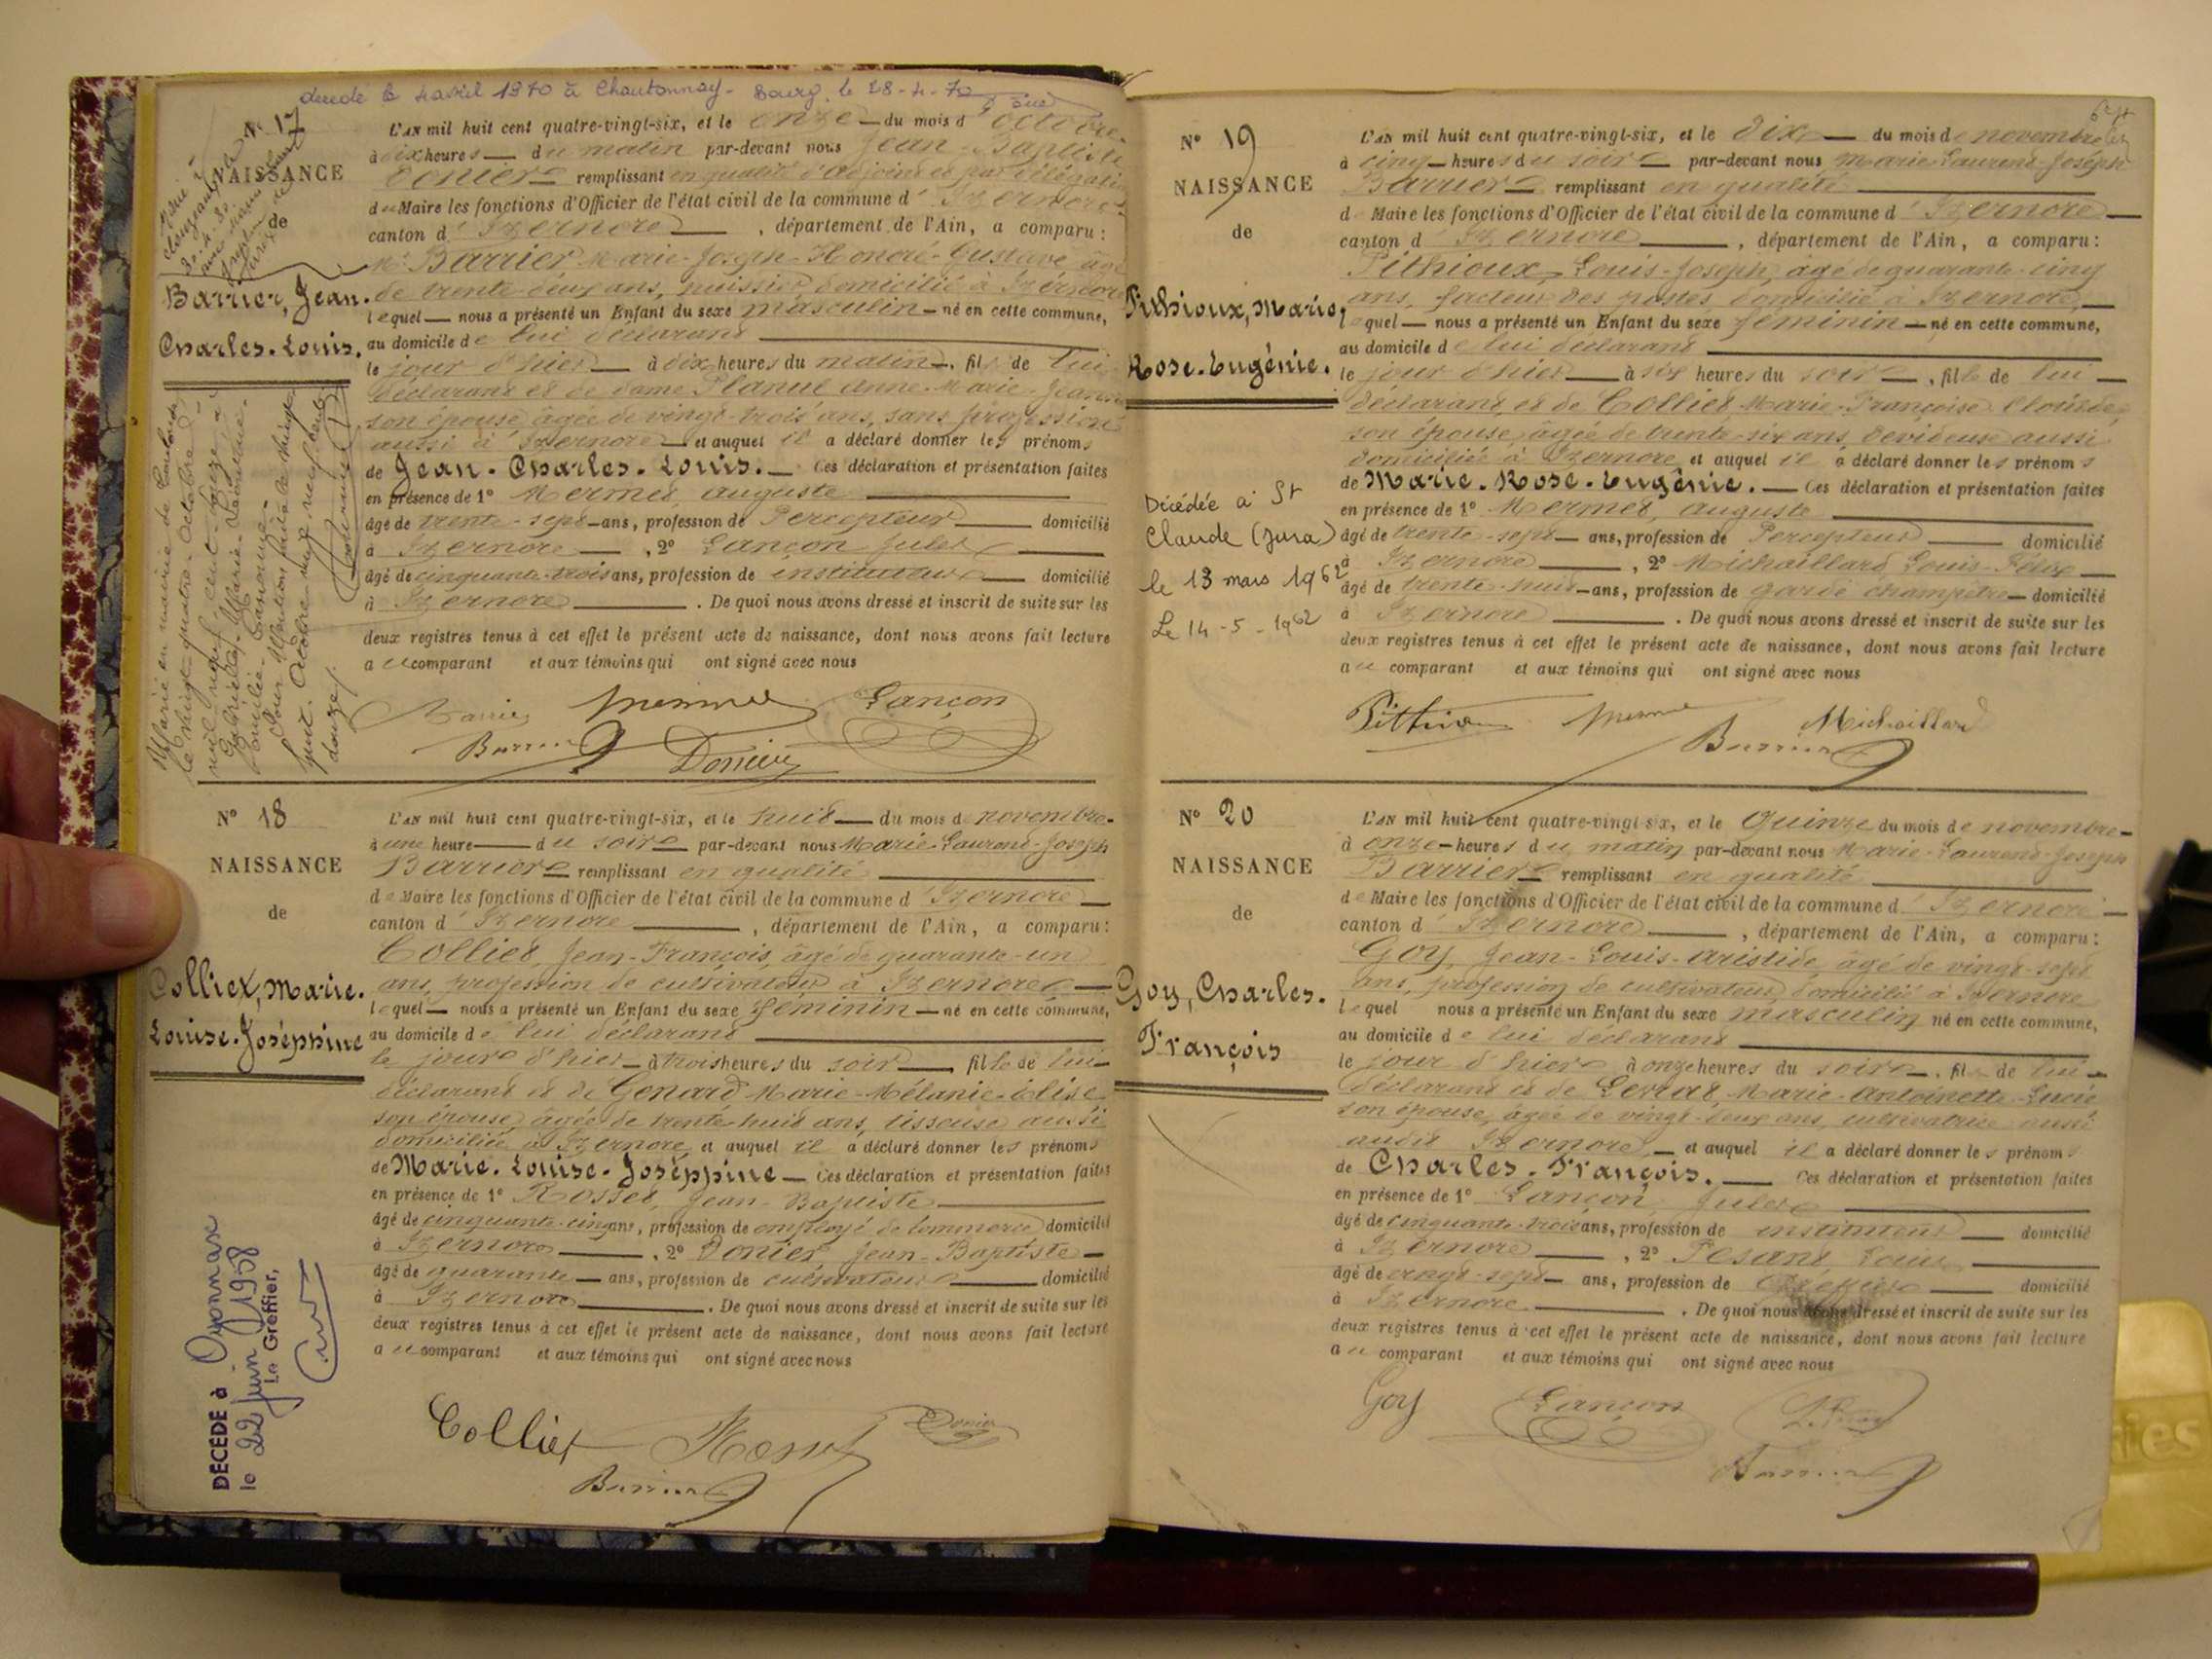 décédé le 4 avril 1970 à Chantonnay - Bourg, le 28-4-70
N° 17
NAISSANCE
de
Barrier, Jean.
Charles. Louis.
L'AN mil huit cent quatre-vingt-six, et le onze du mois d'octobre
à dix heures du matin par-devant nous Jean-Baptiste
Donier remplissant en qualité d'adjoint et par délégation
du Maire les fonctions d'Officier de l'état civil de la commune d'Izernore
canton d'Izernore, département de l'Ain, a comparu :
Mr Barrier Marie-Joseph-Honoré-Gustave, âgé
de trente-deux ans, huissier, domicilié à Izernore
lequel nous a présenté un Enfant du sexe masculin né en cette commune,
au domicile de lui déclarant
le jour d'hier à dix heures du matin, fils de lui
déclarant et de dame Planut Anne-Marie-
son épouse âgée de vingt-trois ans, sans profession
aussi à Izernore et auquel il a déclaré donner les prénoms
de Jean. Charles. Louis. Ces déclaration et présentation faites
en présence de 1° Mermet, Auguste
âgé de trente-sept ans, profession de Percepteur domicilié
à Izernore, 2° Lançon Jules
âgé de cinquante-trois ans, profession de instituteur domicilié
à Izernore. De quoi nous avons dressé et inscrit de suite sur les
deux registres tenus à cet effet le présent acte de naissance, dont nous avons fait lecture
au comparant et aux témoins qui ont signé avec nous
Barrier Mermet Lançon
Barrier Donier
Marié en mairie de
le vingt-quatre octobre
mil neuf cent
Gabrielle Marie
Pour Mention
douze
N° 18
NAISSANCE
de
Colliex, Marie.
Louise. Joséphine
L'AN mil huit cent quatre-vingt-six, et le huit du mois de novembre
à une heure du soir par-devant nous Marie-Laurent-Joseph
Barrier remplissant en qualité
de Maire les fonctions d'Officier de l'état civil de la commune d'Izernore
canton d'Izernore, département de l'Ain, a comparu :
Colliex, Jean-François, âgé de quarante-un
ans, profession de cultivateur à Izernore
lequel nous a présenté un Enfant du sexe féminin né en cette commune,
au domicile de lui déclarant
le jour d'hier à trois heures du soir, fille de lui
déclarant et de Genard Marie-Mélanie-Élise
son épouse, âgée de trente-huit ans, tisseuse aussi
domiciliée à Izernore, et auquel il a déclaré donner les prénoms
de Marie. Louise. Joséphine Ces déclaration et présentation faites
en présence de 1° Rosset, Jean-Baptiste
âgé de cinquante-cinq ans, profession de employé de commerce domicilié
à Izernore, 2° Donier Jean-Baptiste
âgé de quarante ans, profession de cultivateur domicilié
à Izernore. De quoi nous avons dressé et inscrit de suite sur les
deux registres tenus à cet effet le présent acte de naissance, dont nous avons fait lecture
au comparant et aux témoins qui ont signé avec nous
Colliex Rosset Donier
Barrier
DÉCÉDÉ à Oyonnax
le 22 Juin 1958
Le Greffier,
N° 19
NAISSANCE
de
Pithioux, Marie,
Rose. Eugénie.
L'AN mil huit cent quatre-vingt-six, et le dix du mois de novembre
à cinq heures du soir par-devant nous Marie-Laurent-Joseph
Barrier remplissant en qualité
de Maire les fonctions d'Officier de l'état civil de la commune d'Izernore
canton d'Izernore, département de l'Ain, a comparu :
Pithioux, Louis-Joseph, âgé de quarante-cinq
ans, facteur des postes, domicilié à Izernore,
lequel nous a présenté un Enfant du sexe féminin né en cette commune,
au domicile de lui déclarant
le jour d'hier à six heures du soir, fille de lui
déclarant, et de Colliex Marie-Françoise Clotilde,
son épouse, âgée de trente-six ans, dévideuse aussi
domiciliée à Izernore et auquel il a déclaré donner les prénoms
de Marie. Rose. Eugénie. Ces déclaration et présentation faites
en présence de 1° Mermet, Auguste
âgé de trente-sept ans, profession de Percepteur domicilié
à Izernore, 2° Michaillard Louis-Félix
âgé de trente-huit ans, profession de garde champêtre domicilié
à Izernore. De quoi nous avons dressé et inscrit de suite sur les
deux registres tenus à cet effet le présent acte de naissance, dont nous avons fait lecture
au comparant et aux témoins qui ont signé avec nous
Pithioux Mermet Michaillard
Barrier
Décédée à St
Claude (Jura)
le 13 mars 1962
Le 14-5-1962
N° 20
NAISSANCE
de
Goy, Charles.
François
L'AN mil huit cent quatre-vingt six, et le Quinze du mois de novembre
à onze heures du matin par-devant nous Marie-Laurent-Joseph
Barrier remplissant en qualité
de Maire les fonctions d'Officier de l'état civil de la commune d'Izernore
canton d'Izernore, département de l'Ain, a comparu :
Goy, Jean-Louis-Aristide âgé de vingt-sept
ans, profession de cultivateur, domicilié à Izernore
lequel nous a présenté un Enfant du sexe masculin né en cette commune,
au domicile de lui déclarant
le jour d'hier à onze heures du soir, fils de lui
déclarant et de Levrat, Marie-Antoinette-Lucie
son épouse, âgée de vingt-deux ans, cultivatrice aussi
audit Izernore, et auquel il a déclaré donner les prénoms
de Charles. François. Ces déclaration et présentation faites
en présence de 1° Lançon, Jules
âgé de cinquante-trois ans, profession de instituteur domicilié
à Izernore, 2° Pesant, Louis
âgé de vingt-sept ans, profession de Greffier domicilié
à Izernore. De quoi nous avons dressé et inscrit de suite sur les
deux registres tenus à cet effet le présent acte de naissance, dont nous avons fait lecture
au comparant et aux témoins qui ont signé avec nous
Goy Lançon
Barrier